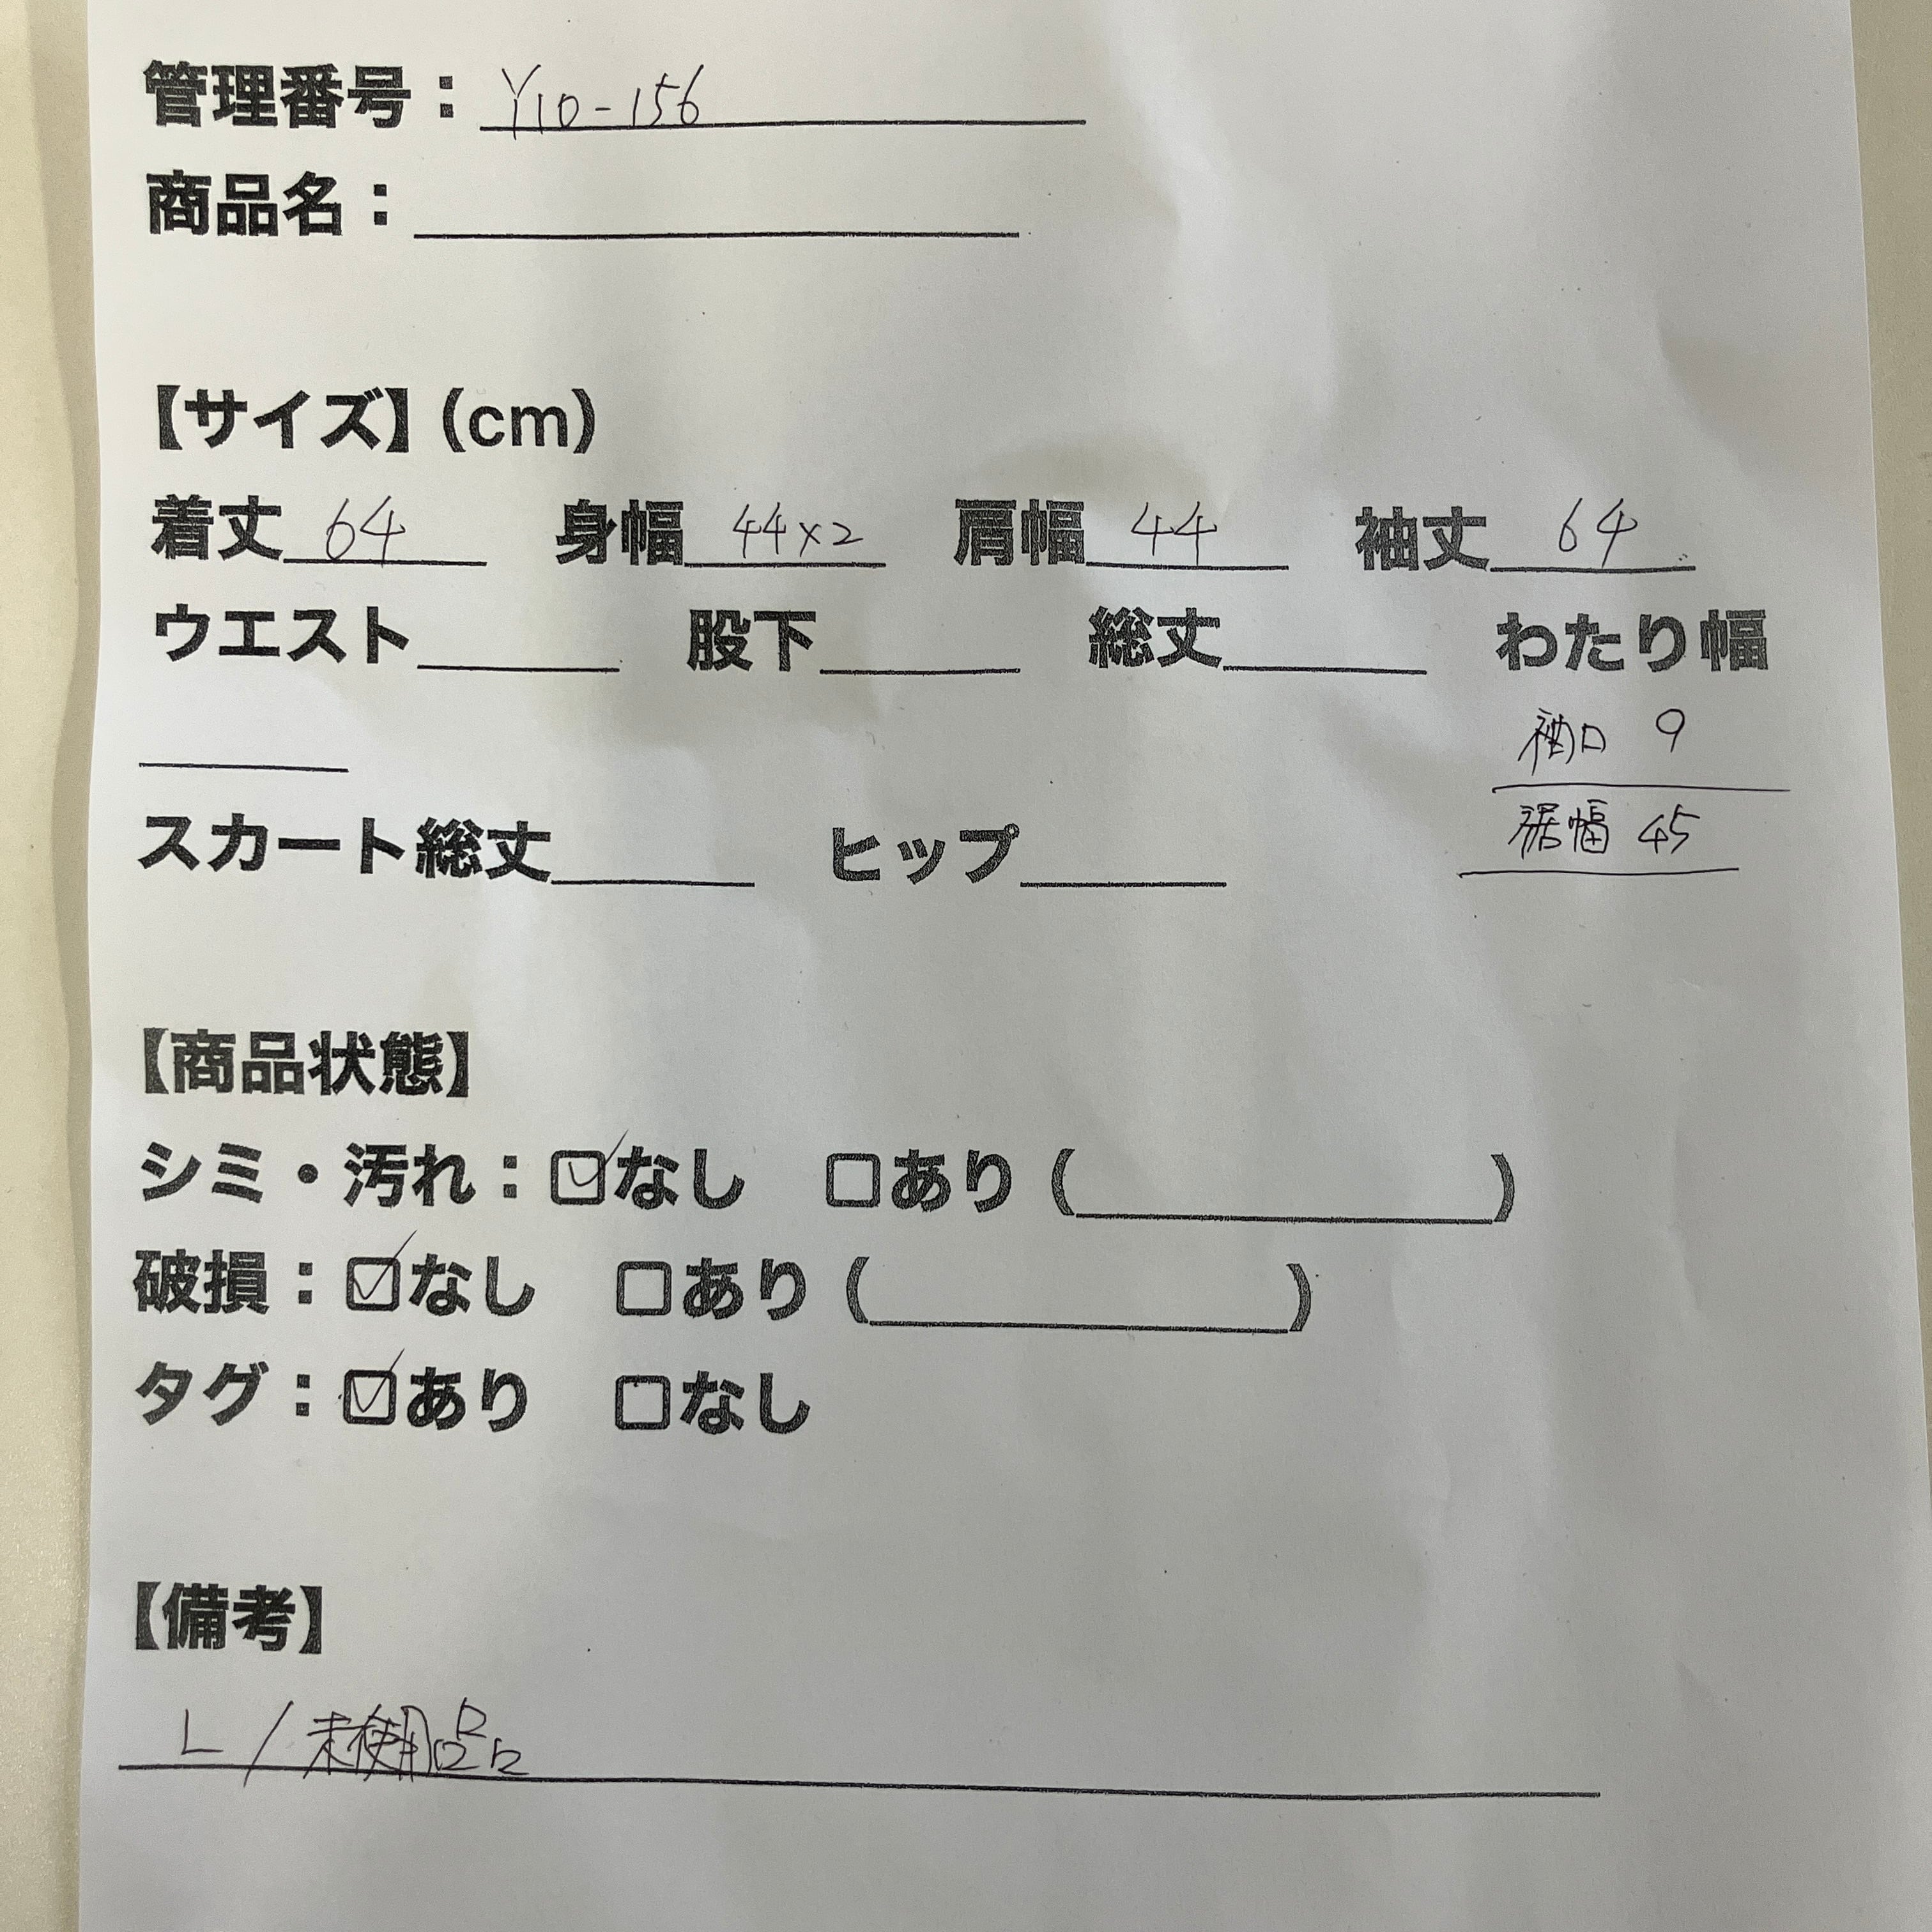 管理番号：Y10-156
商品名：
【サイズ】(cm)
着丈 64 身幅 44×2 肩幅 44 袖丈 64
ウエスト 股下 総丈 わたり幅
袖口 9
裾幅 45
スカート総丈 ヒップ
【商品状態】
シミ・汚れ：☑なし □あり ( )
破損：☑なし □あり ( )
タグ：☑あり □なし
【備考】
L / 未使用品